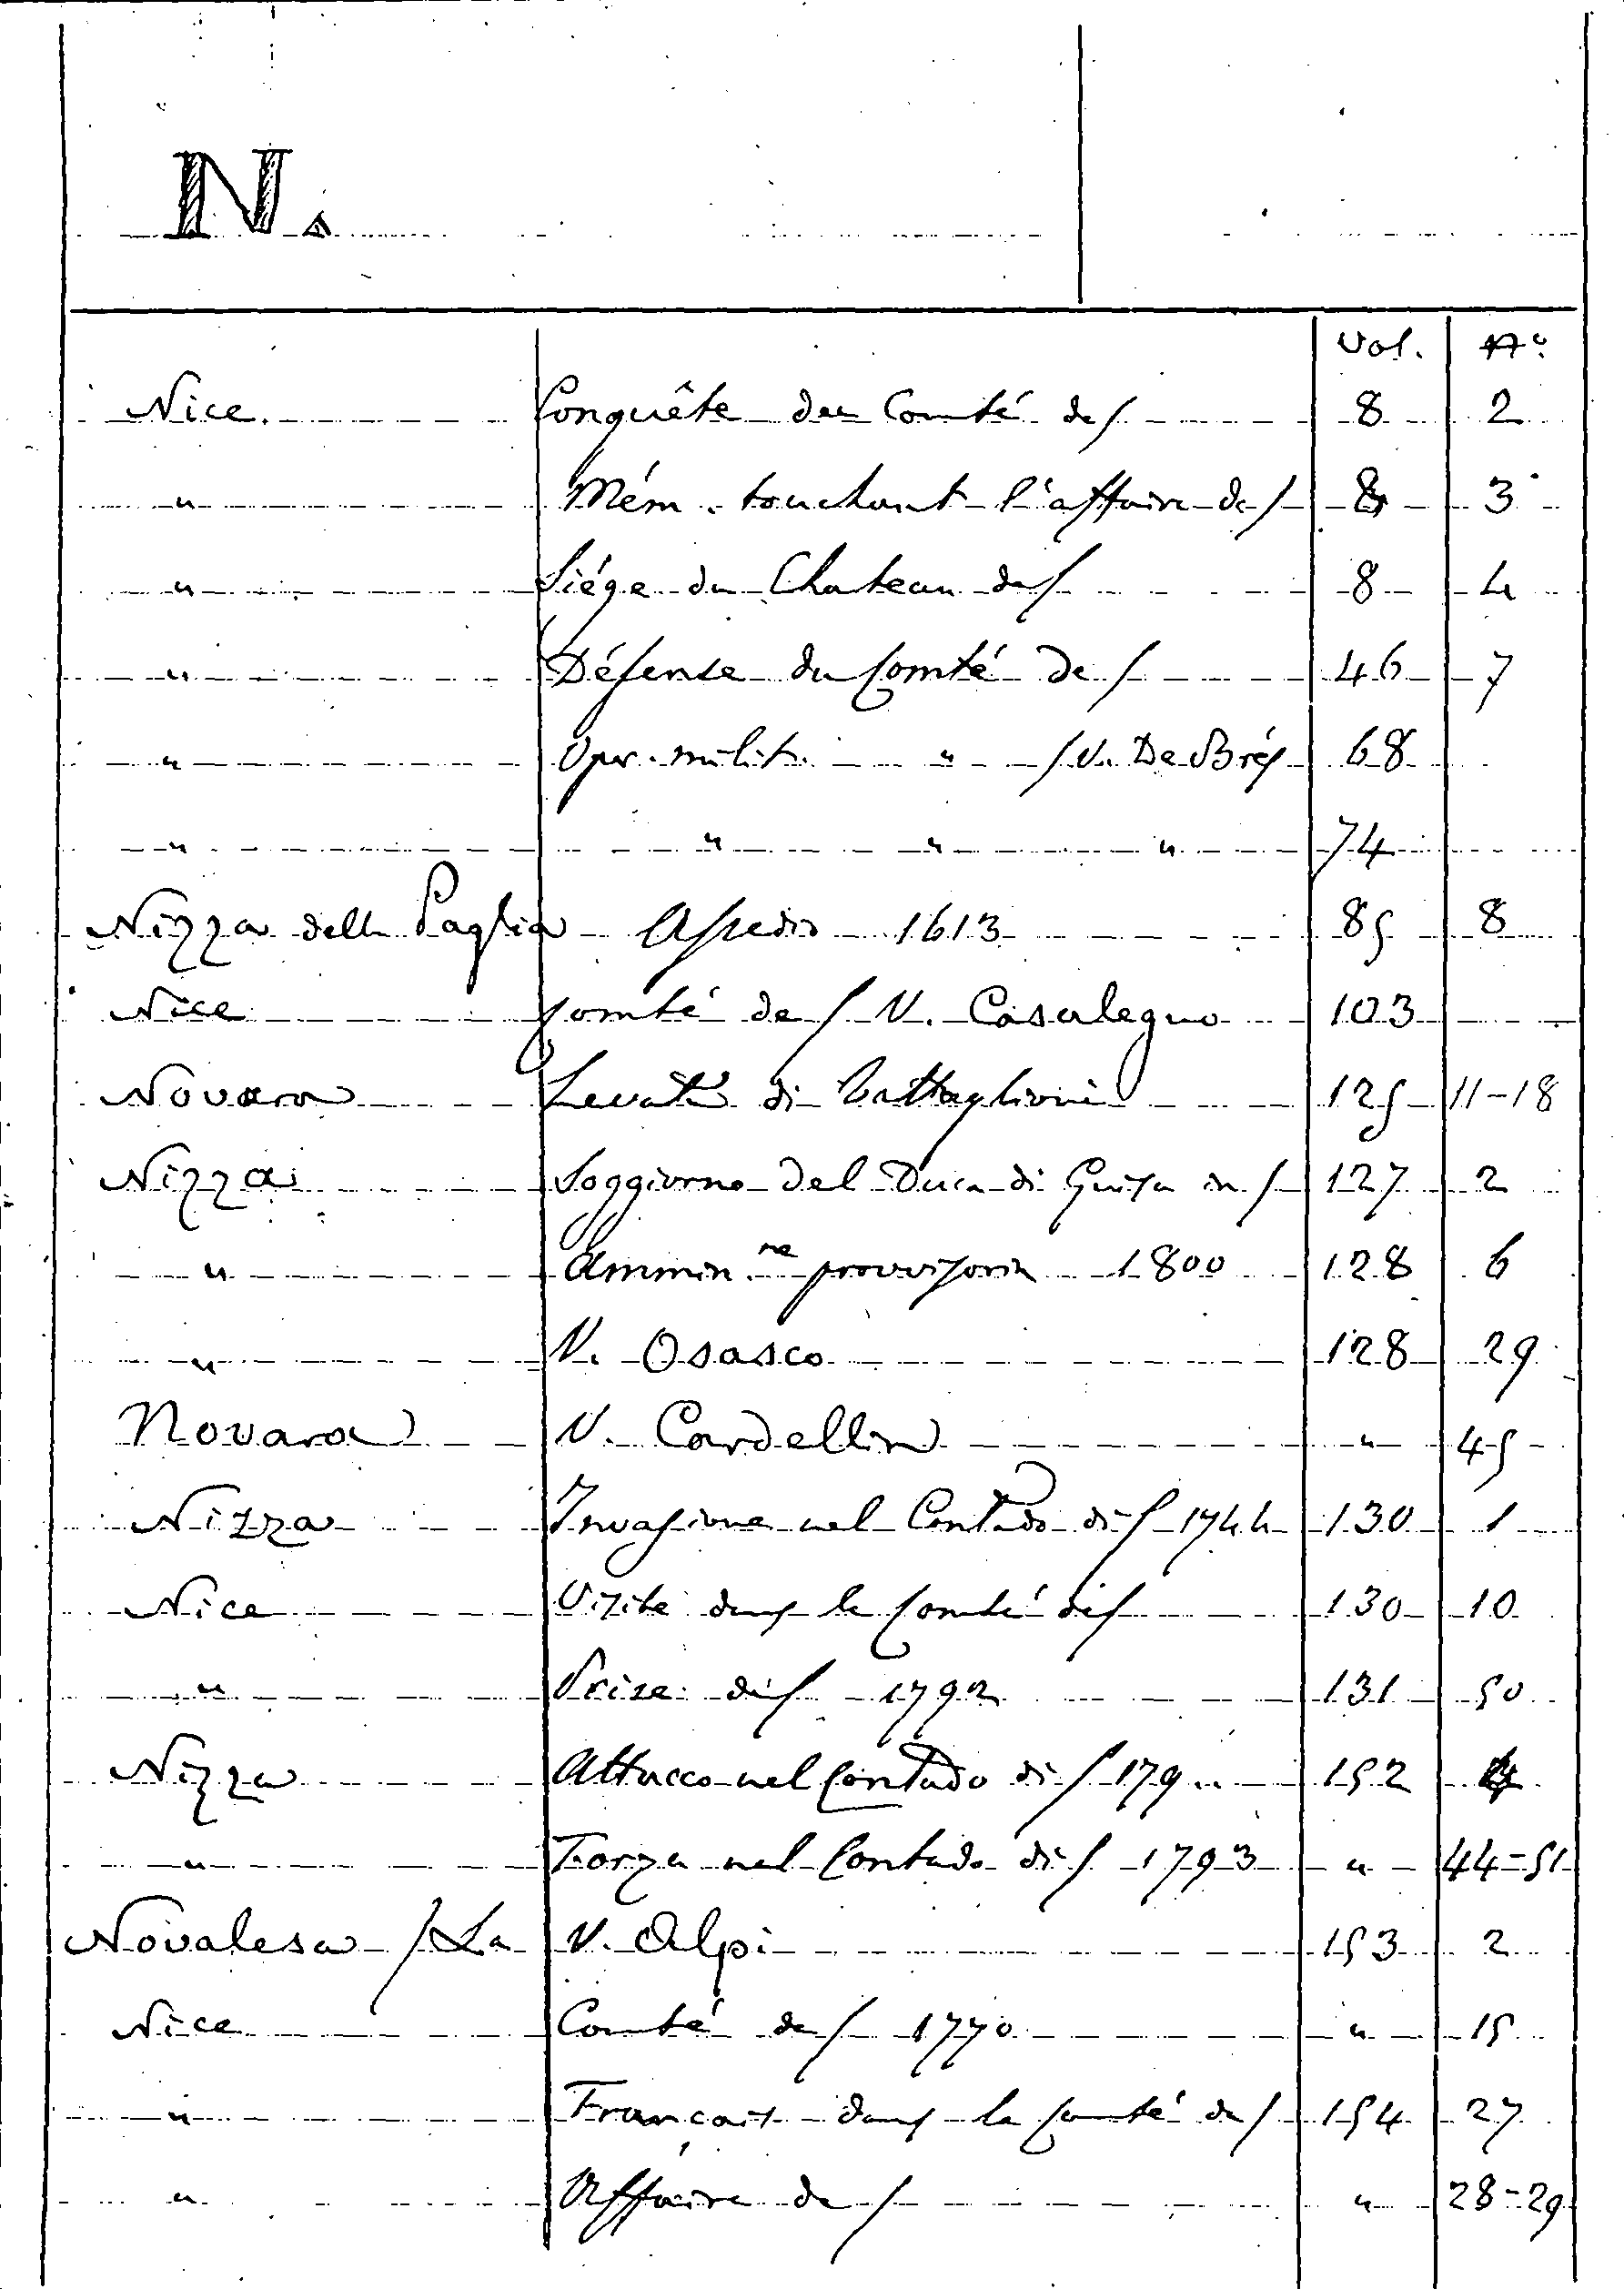 N.
Vol. N°
Nice Conquête du Comté de / 8 2
" Mém. touchant l'affaire de / 8 3
" Siége du Chateau de / 8 4
" Défense du Comté de / 46 7
" Oper. milit. " / V. De Brés 68
" " " " 74
Nizza della Paglia Assedio 1613 85 8
Nice Comté de / V. Casalegno 103
Novara Levata di battaglioni 125 11-18
Nizza Soggiorno del Duca di Guisa in / 127 2
" Ammin.ne provvisoria 1800 128 6
" V. Osasco 128 29
Novara V. Cardellin " 45
Nizza Invasione nel Contado di / 1744 130 1
Nice Visite dans le Comté di / 130 10
" Prise di / 1792 131 50
Nizza Attacco nel Contado di / 179.. 152
" Forza nel Contado di / 1793 " 44-51
Novalesa / La V. Alpi 153 2
Nice Comté de / 1770 " 15
" Français dans le Comté de / 154 27
" Affaire de / " 28-29